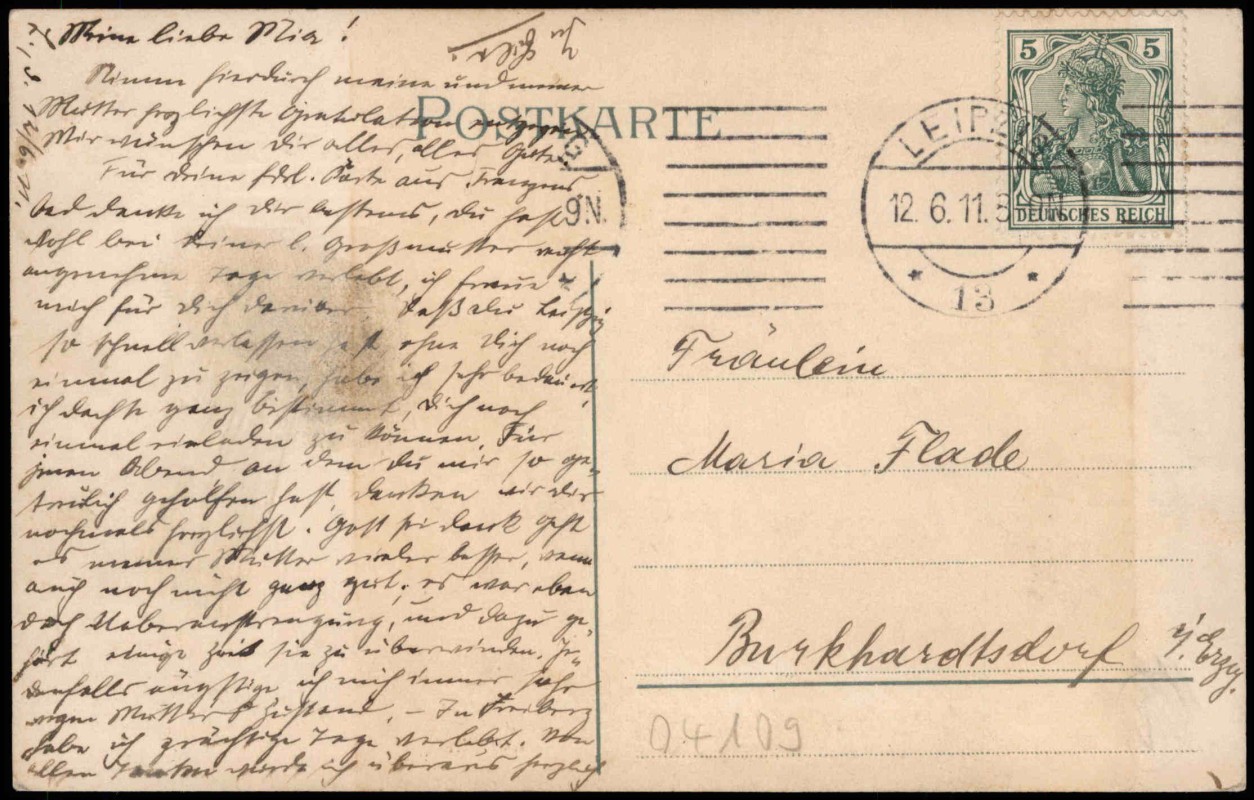 L., d. 12/6. 11.
Meine liebe Mia!
Nimm hierdurch meine und meiner
Mutter herzlichste Gratulation entgegen.
Wir wünschen Dir alles, alles Gute.
Für Deine frdl. Karte aus Franzens
bad danke ich Dir bestens, Du hast
wohl bei Deiner l. Großmutter recht
angenehme Tage verlebt, ich freue
mich für Dich darüber. Daß Du Leipzig
so schnell verlassen hast ohne Dich noch
einmal zu zeigen, habe ich sehr bedauert,
ich dachte ganz bestimmt, Dich noch
einmal einladen zu können. Für
jenen Abend an dem Du mir so ge-
treulich geholfen hast, danken wir Dir
nochmals herzlichst. Gott sei dank geht
es meiner Mutter wieder besser, wenn
auch noch nicht ganz gut; es war eben
doch Ueberanstrengung, und dazu ge-
hört einige Zeit sie zu überwinden. Je-
denfalls ängstige ich mich immer sehr
wegen Mutters Zustand. – In Freiberg
habe ich prächtige Tage verlebt. Von
allen Tanten wurde ich überaus herzlich
POSTKARTE
LEIPZIG
12. 6. 11. 8-9N.
* 13 *
9N.
5 5
DEUTSCHES REICH
Fräulein
Maria Flade
Burkhardtsdorf i/Erzg.
04109